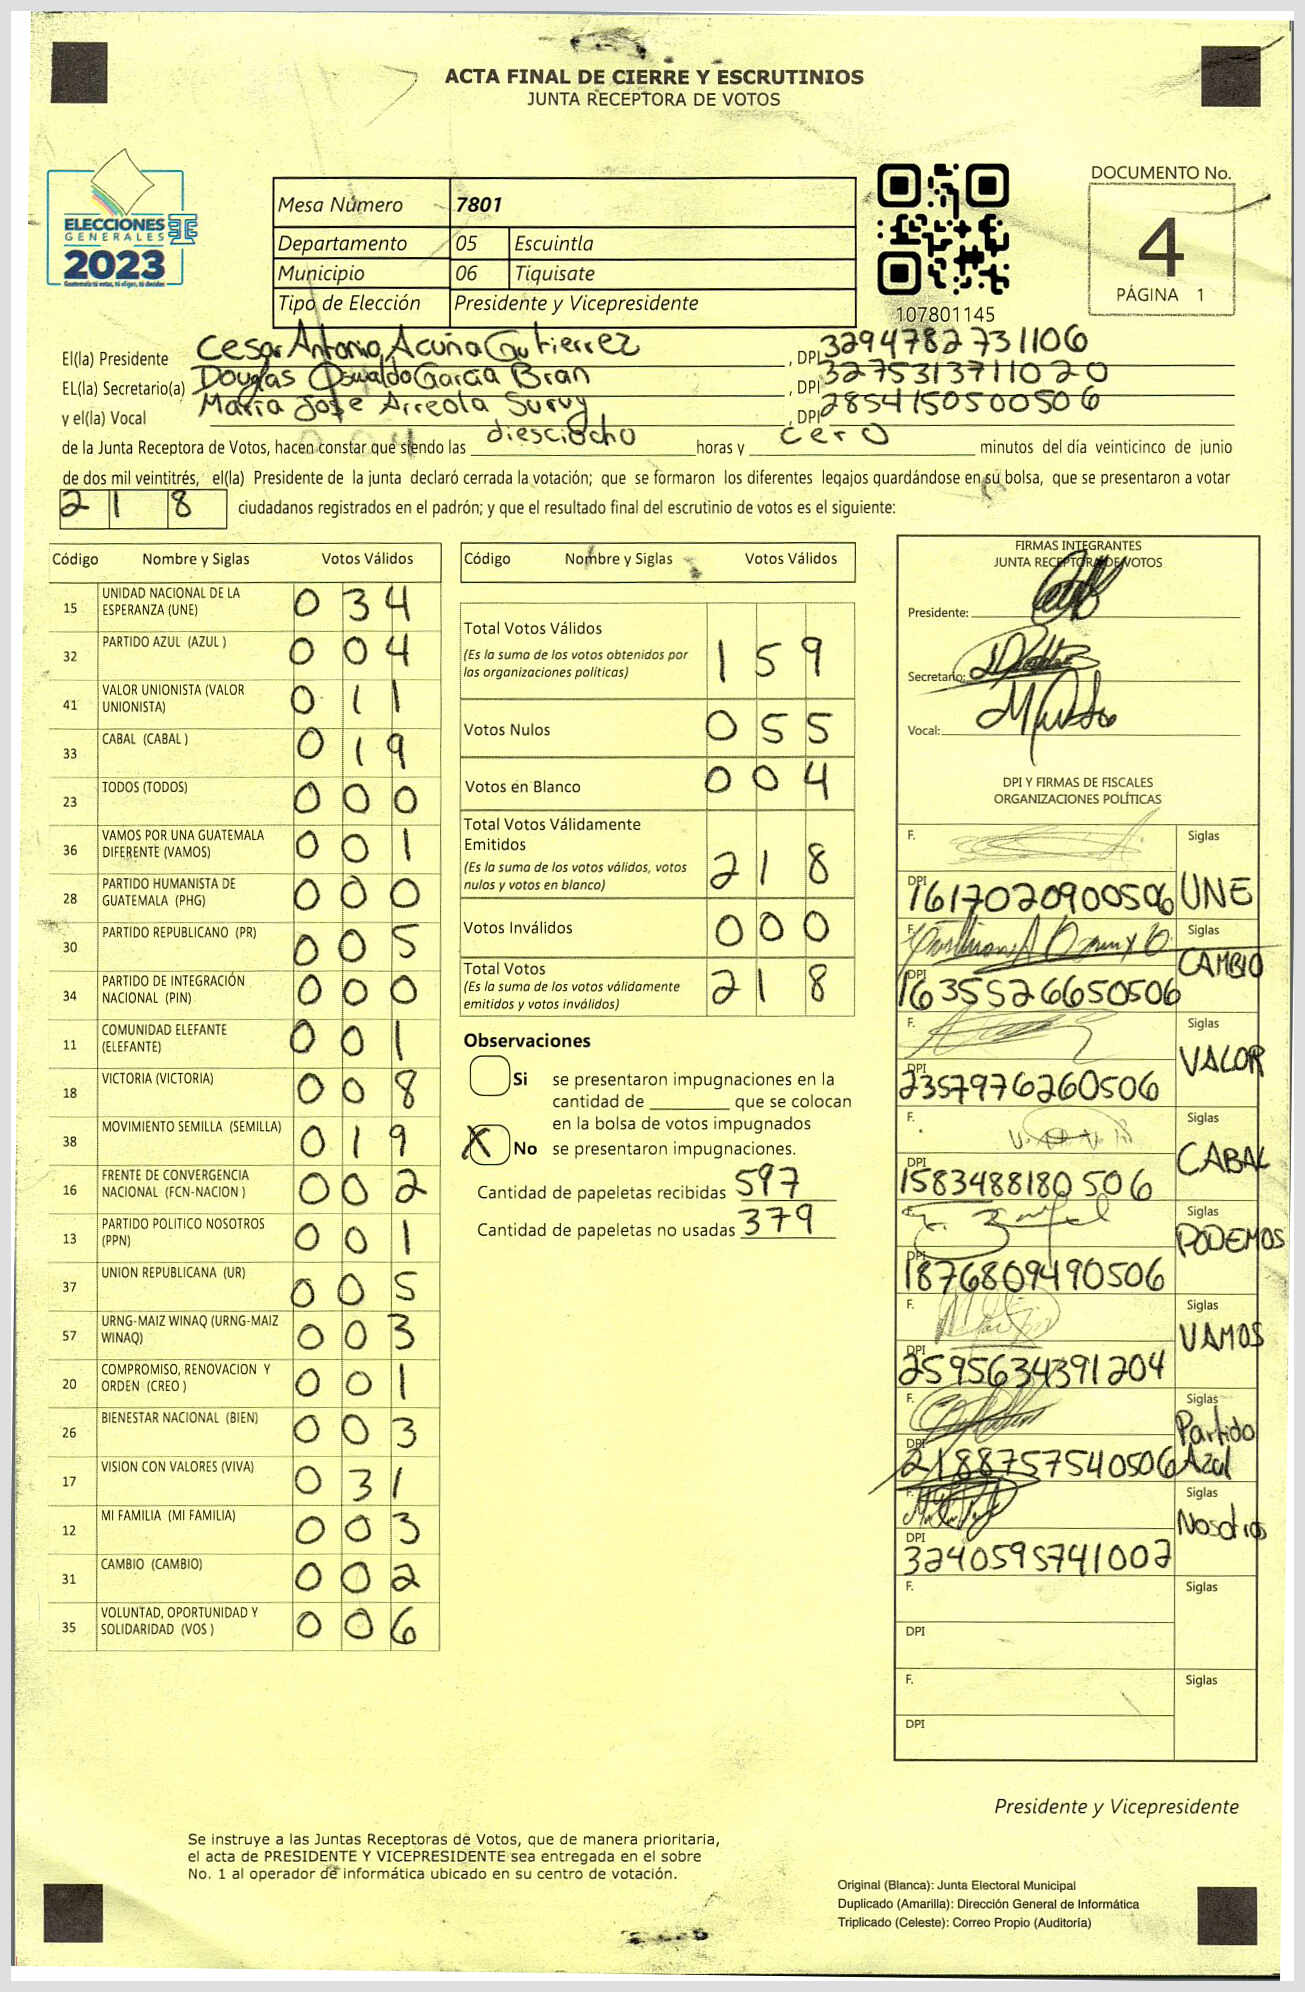 ACTA FINAL DE CIERRE Y ESCRUTINIOS
JUNTA RECEPTORA DE VOTOS
ELECCIONES
GENERALES
2023
Guatemala tú votas, tú eliges, tú decides
Mesa Número 7801
Departamento 05 Escuintla
Municipio 06 Tiquisate
Tipo de Elección Presidente y Vicepresidente
107801145
DOCUMENTO No.
4
PÁGINA 1
El(la) Presidente Cesar Antonio Acuña Gutierrez , DPI 3294782731106
EL(la) Secretario(a) Douglas Oswaldo Garcia Bran , DPI 3275313711020
y el(la) Vocal Maria Jose Arreola Suruy , DPI 2854150500506
de la Junta Receptora de Votos, hacen constar que siendo las diesciocho horas y cero minutos del día veinticinco de junio
de dos mil veintitrés, el(la) Presidente de la junta declaró cerrada la votación; que se formaron los diferentes legajos guardándose en su bolsa, que se presentaron a votar
218 ciudadanos registrados en el padrón; y que el resultado final del escrutinio de votos es el siguiente:
Código Nombre y Siglas Votos Válidos
15 UNIDAD NACIONAL DE LA ESPERANZA (UNE) 0 3 4
32 PARTIDO AZUL (AZUL ) 0 0 4
41 VALOR UNIONISTA (VALOR UNIONISTA) 0 1 1
33 CABAL (CABAL ) 0 1 9
23 TODOS (TODOS) 0 0 0
36 VAMOS POR UNA GUATEMALA DIFERENTE (VAMOS) 0 0 1
28 PARTIDO HUMANISTA DE GUATEMALA (PHG) 0 0 0
30 PARTIDO REPUBLICANO (PR) 0 0 5
34 PARTIDO DE INTEGRACIÓN NACIONAL (PIN) 0 0 0
11 COMUNIDAD ELEFANTE (ELEFANTE) 0 0 1
18 VICTORIA (VICTORIA) 0 0 8
38 MOVIMIENTO SEMILLA (SEMILLA) 0 1 9
16 FRENTE DE CONVERGENCIA NACIONAL (FCN-NACION ) 0 0 2
13 PARTIDO POLITICO NOSOTROS (PPN) 0 0 1
37 UNION REPUBLICANA (UR) 0 0 5
57 URNG-MAIZ WINAQ (URNG-MAIZ WINAQ) 0 0 3
20 COMPROMISO, RENOVACION Y ORDEN (CREO ) 0 0 1
26 BIENESTAR NACIONAL (BIEN) 0 0 3
17 VISION CON VALORES (VIVA) 0 3 1
12 MI FAMILIA (MI FAMILIA) 0 0 3
31 CAMBIO (CAMBIO) 0 0 2
35 VOLUNTAD, OPORTUNIDAD Y SOLIDARIDAD (VOS ) 0 0 6
Código Nombre y Siglas Votos Válidos
Total Votos Válidos 1 5 9
(Es la suma de los votos obtenidos por
las organizaciones políticas)
Votos Nulos 0 5 5
Votos en Blanco 0 0 4
Total Votos Válidamente
Emitidos 2 1 8
(Es la suma de los votos válidos, votos
nulos y votos en blanco)
Votos Inválidos 0 0 0
Total Votos 2 1 8
(Es la suma de los votos válidamente
emitidos y votos inválidos)
Observaciones
Si se presentaron impugnaciones en la
cantidad de ________ que se colocan
en la bolsa de votos impugnados
X No se presentaron impugnaciones.
Cantidad de papeletas recibidas 597
Cantidad de papeletas no usadas 379
FIRMAS INTEGRANTES
JUNTA RECEPTORA DE VOTOS
Presidente:
Secretario:
Vocal:
DPI Y FIRMAS DE FISCALES
ORGANIZACIONES POLÍTICAS
F. Siglas
DPI 1617020900506 UNE
F. Siglas
DPI 1635526650506 CAMBIO
F. Siglas
DPI 2357976260506 VALOR
F. Siglas
DPI 1583488180506 CABAL
F. Siglas
DPI 1876809490506 PODEMOS
F. Siglas
DPI 2595634391204 VAMOS
F. Siglas
DPI 2188757540506 Partido Azul
F. Siglas
DPI 3240595741002 Nosotros
F. Siglas
DPI
F. Siglas
DPI
Presidente y Vicepresidente
Se instruye a las Juntas Receptoras de Votos, que de manera prioritaria,
el acta de PRESIDENTE Y VICEPRESIDENTE sea entregada en el sobre
No. 1 al operador de informática ubicado en su centro de votación.
Original (Blanca): Junta Electoral Municipal
Duplicado (Amarilla): Dirección General de Informática
Triplicado (Celeste): Correo Propio (Auditoría)